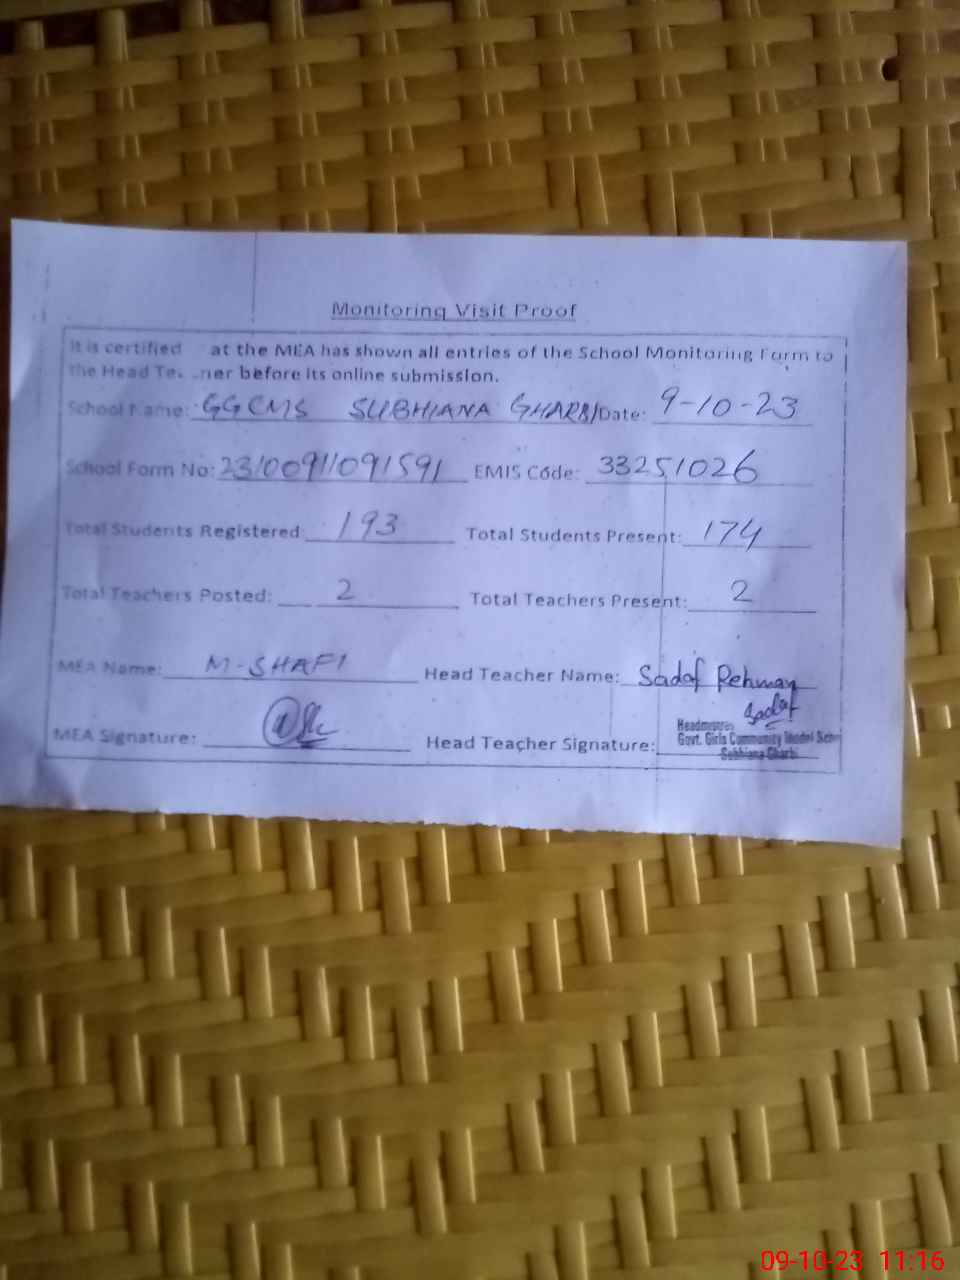 Monitoring Visit Proof
It is certified at the MEA has shown all entries of the School Monitoring Form to
the Head Te ner before its online submission.
School Name: GGCMS SUBHIANA GHARBI Date: 9-10-23
School Form No: 23/0091/091591 EMIS Code: 33251026
Total Students Registered: 193 Total Students Present: 174
Total Teachers Posted: 2 Total Teachers Present: 2
MEA Name: M-SHAFI Head Teacher Name: Sadaf Rehman
Sadaf
Headmistres
MEA Signature: Head Teacher Signature: Govt. Girls Community Model Scho
Subhiana Gharbi
09-10-23 11:16